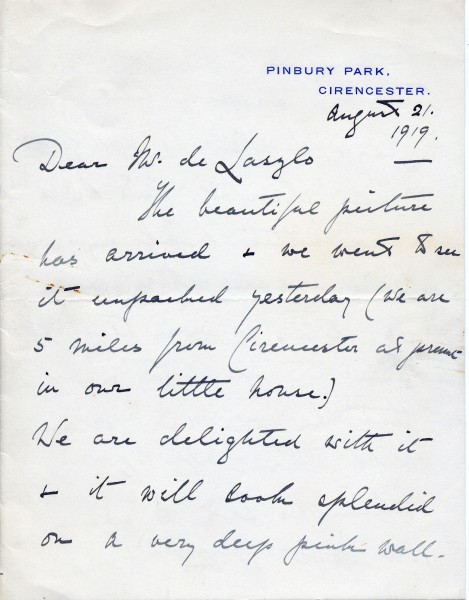 PINBURY PARK,
CIRENCESTER.
August 21.
1919.
Dear Mr. de Laszlo
The beautiful picture
has arrived & we went to see
it unpacked yesterday (We are
5 miles from Cirencester at present
in our little house.)
We are delighted with it
& it will look splendid
on a very deep pink wall.